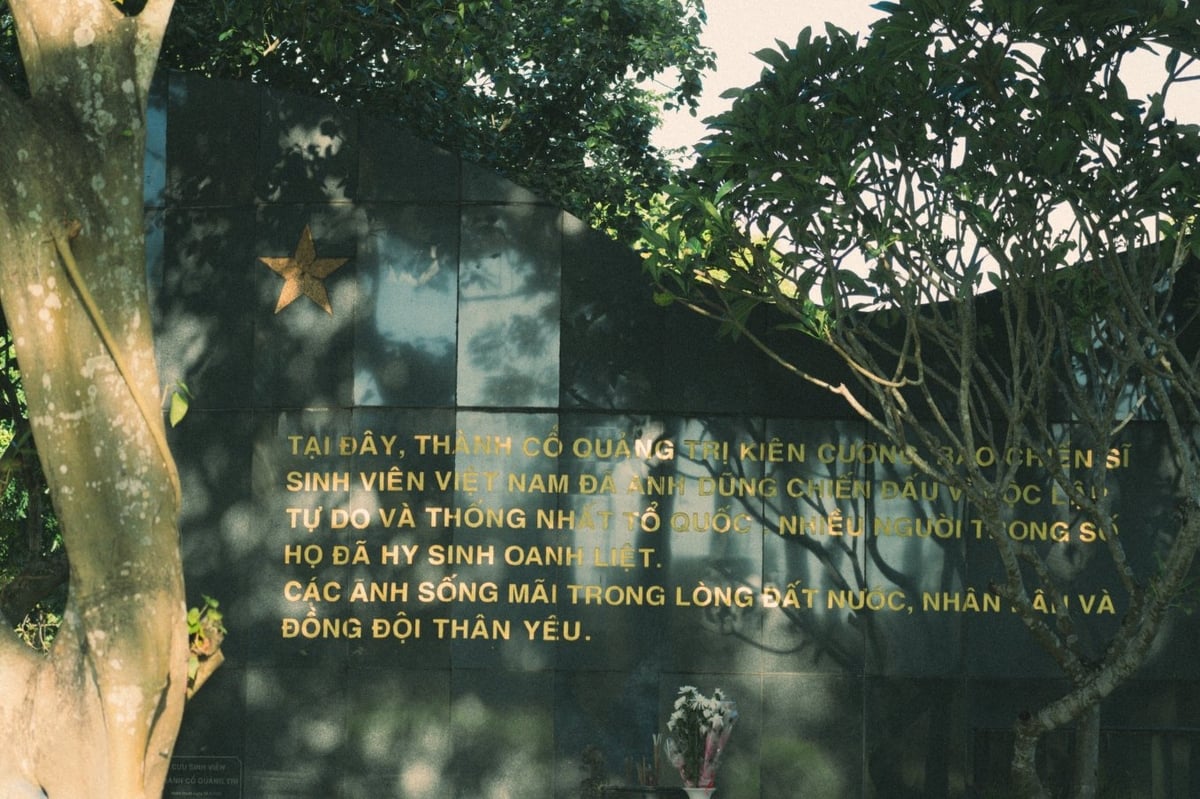 TẠI ĐÂY, THÀNH CỔ QUẢNG TRỊ KIÊN CƯỜNG, BAO CHIẾN SĨ
SINH VIÊN VIỆT NAM ĐÃ ANH DŨNG CHIẾN ĐẤU VÌ ĐỘC LẬP
TỰ DO VÀ THỐNG NHẤT TỔ QUỐC . NHIỀU NGƯỜI TRONG SỐ
HỌ ĐÃ HY SINH OANH LIỆT.
CÁC ANH SỐNG MÃI TRONG LÒNG ĐẤT NƯỚC, NHÂN DÂN VÀ
ĐỒNG ĐỘI THÂN YÊU.
CỰU SINH VIÊN
THÀNH CỔ QUẢNG TRỊ